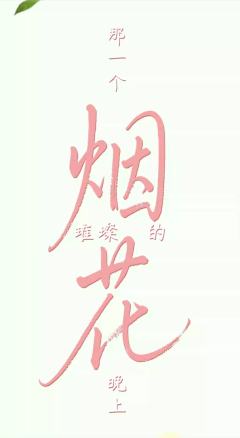 那一个
烟花
璀璨的
晚上